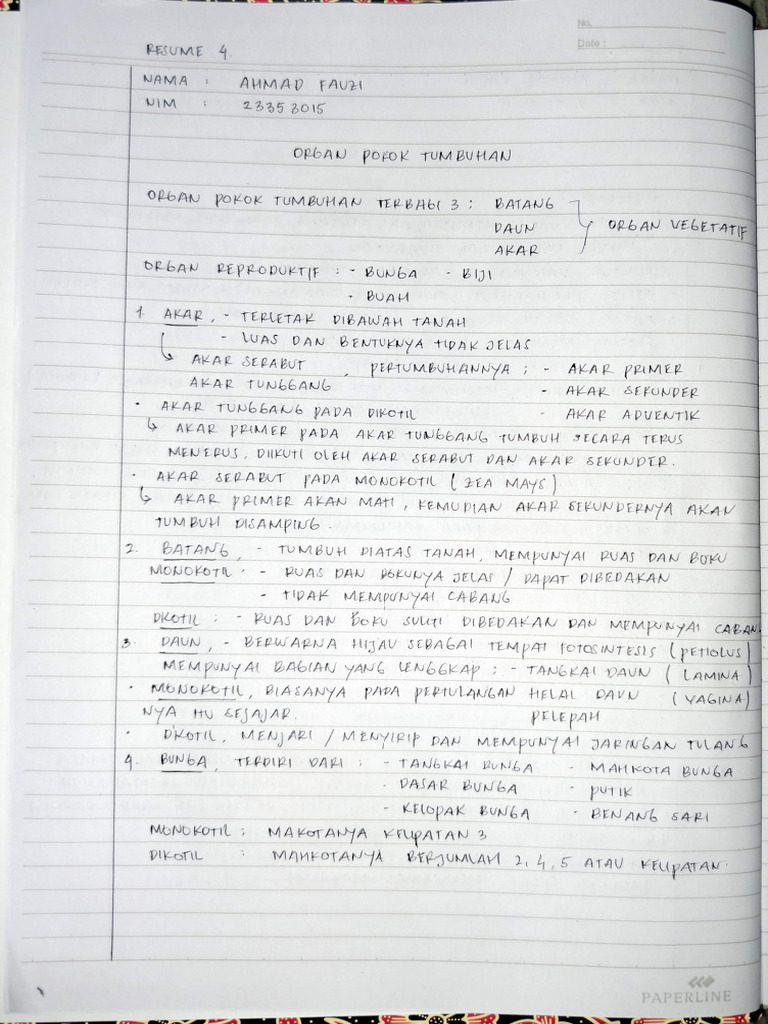 No.
Date :
RESUME 4.
NAMA : AHMAD FAUZI
NIM : 23353015
ORGAN POKOK TUMBUHAN
ORGAN POKOK TUMBUHAN TERBAGI 3 : BATANG
DAUN ORGAN VEGETATIF
AKAR
ORGAN REPRODUKTIF : - BUNGA - BIJI
- BUAH
1. AKAR, - TERLETAK DIBAWAH TANAH
- LUAS DAN BENTUKNYA TIDAK JELAS
↳ AKAR SERABUT , PERTUMBUHANNYA ; - AKAR PRIMER
AKAR TUNGGANG - AKAR SEKUNDER
· AKAR TUNGGANG PADA DIKOTIL - AKAR ADVENTIK
↳ AKAR PRIMER PADA AKAR TUNGGANG TUMBUH SECARA TERUS
MENERUS, DIIKUTI OLEH AKAR SERABUT DAN AKAR SEKUNDER.
· AKAR SERABUT PADA MONOKOTIL (ZEA MAYS)
↳ AKAR PRIMER AKAN MATI, KEMUDIAN AKAR SEKUNDERNYA AKAN
TUMBUH DISAMPING.
2. BATANG, - TUMBUH DIATAS TANAH, MEMPUNYAI RUAS DAN BUKU
MONOKOTIL · - RUAS DAN BUKUNYA JELAS / DAPAT DIBEDAKAN
- TIDAK MEMPUNYAI CABANG
DKOTIL : - RUAS DAN BUKU SULIT DIBEDAKAN DAN MEMPUNYAI CABANG
3. DAUN, - BERWARNA HIJAU SEBAGAI TEMPAT FOTOSINTESIS (PETIOLUS)
MEMPUNYAI BAGIAN YANG LENGGKAP : - TANGKAI DAUN (LAMINA)
· MONOKOTIL, BIASANYA PADA PERTULANGAN HELAI DAUN (VAGINA)
NYA ITU SEJAJAR. PELEPAH
· DIKOTIL, MENJARI / MENYIRIP DAN MEMPUNYAI JARINGAN TULANG
4. BUNGA, TERDIRI DARI : - TANGKAI BUNGA - MAHKOTA BUNGA
- DASAR BUNGA - PUTIK
- KELOPAK BUNGA - BENANG SARI
MONOKOTIL : MAKOTANYA KELIPATAN 3
DIKOTIL : MAHKOTANYA BERJUMLAH 2, 4, 5 ATAU KELIPATAN.
PAPERLINE